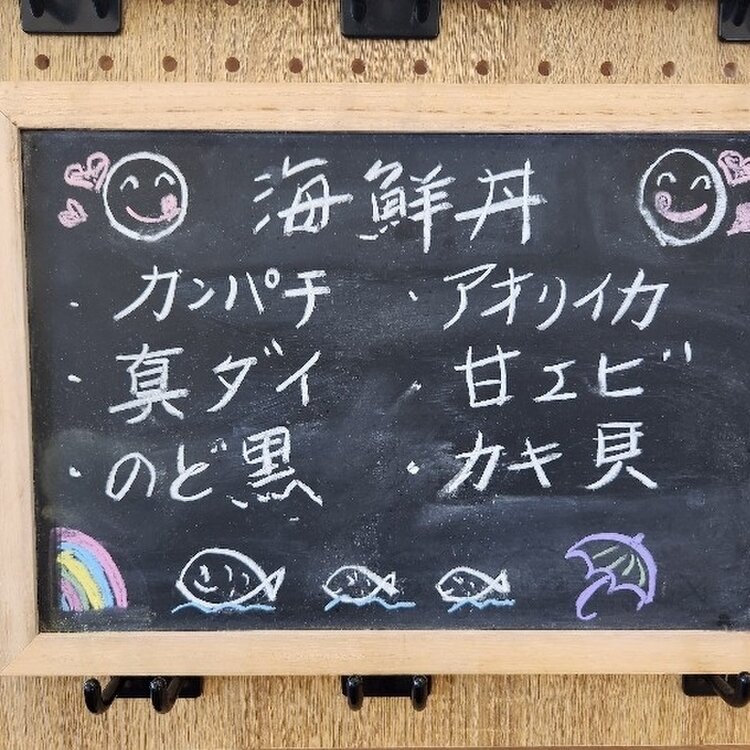 海鮮丼
・ガンパチ ・アオリイカ
・真ダイ ・甘エビ
・のど黒 ・カキ貝